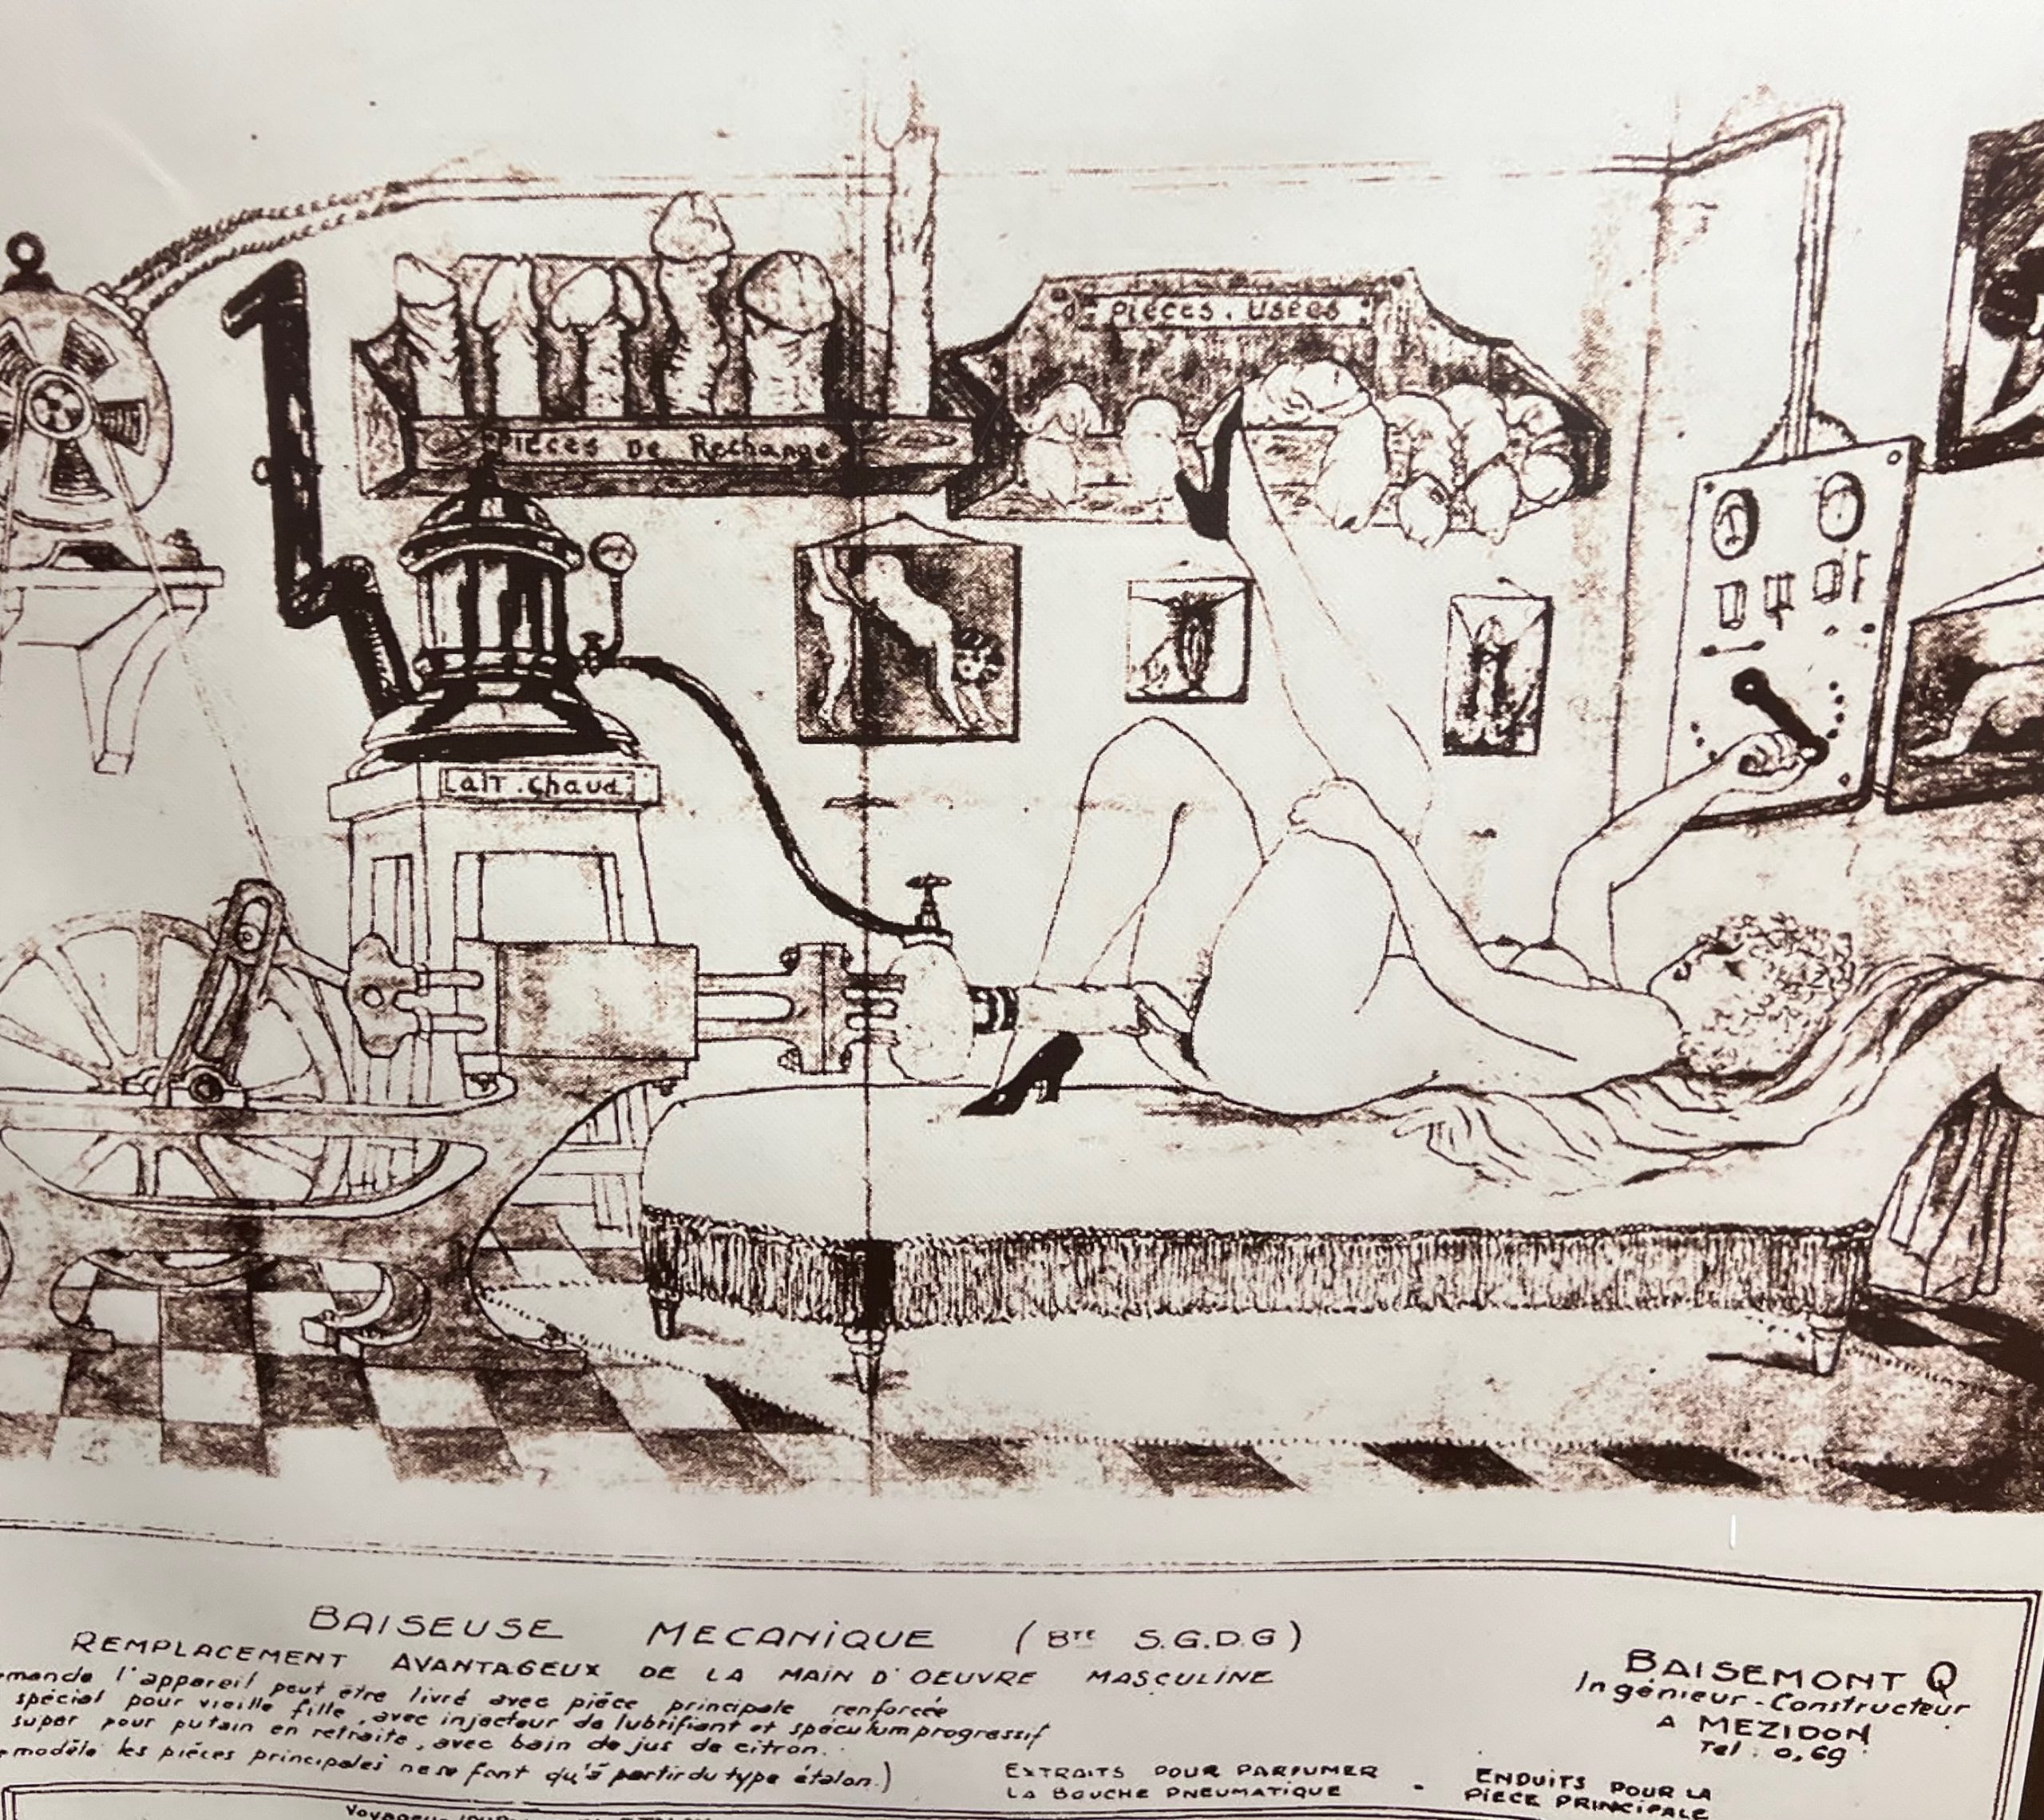 PIECES DE Rechange
PIECES. USEES
LaiT. Chaud
BAISEUSE MECANIQUE (BTE S.G.D.G)
REMPLACEMENT AVANTAGEUX DE LA MAIN D'OEUVRE MASCULINE
l'appareil peut être livré avec pièce principale renforcée
spécial pour vieille fille, avec injecteur de lubrifiant et spéculum progressif
super pour putain en retraite, avec bain de jus de citron.
modèle les pièces principales ne se font qu'à partir du type étalon.)
BAISEMONT Q
Ingénieur-Constructeur
A MEZIDON
Tel : 0,69
EXTRAITS POUR PARFUMER
LA BOUCHE PNEUMATIQUE -
ENDUITS POUR LA
PIECE PRINCIPALE